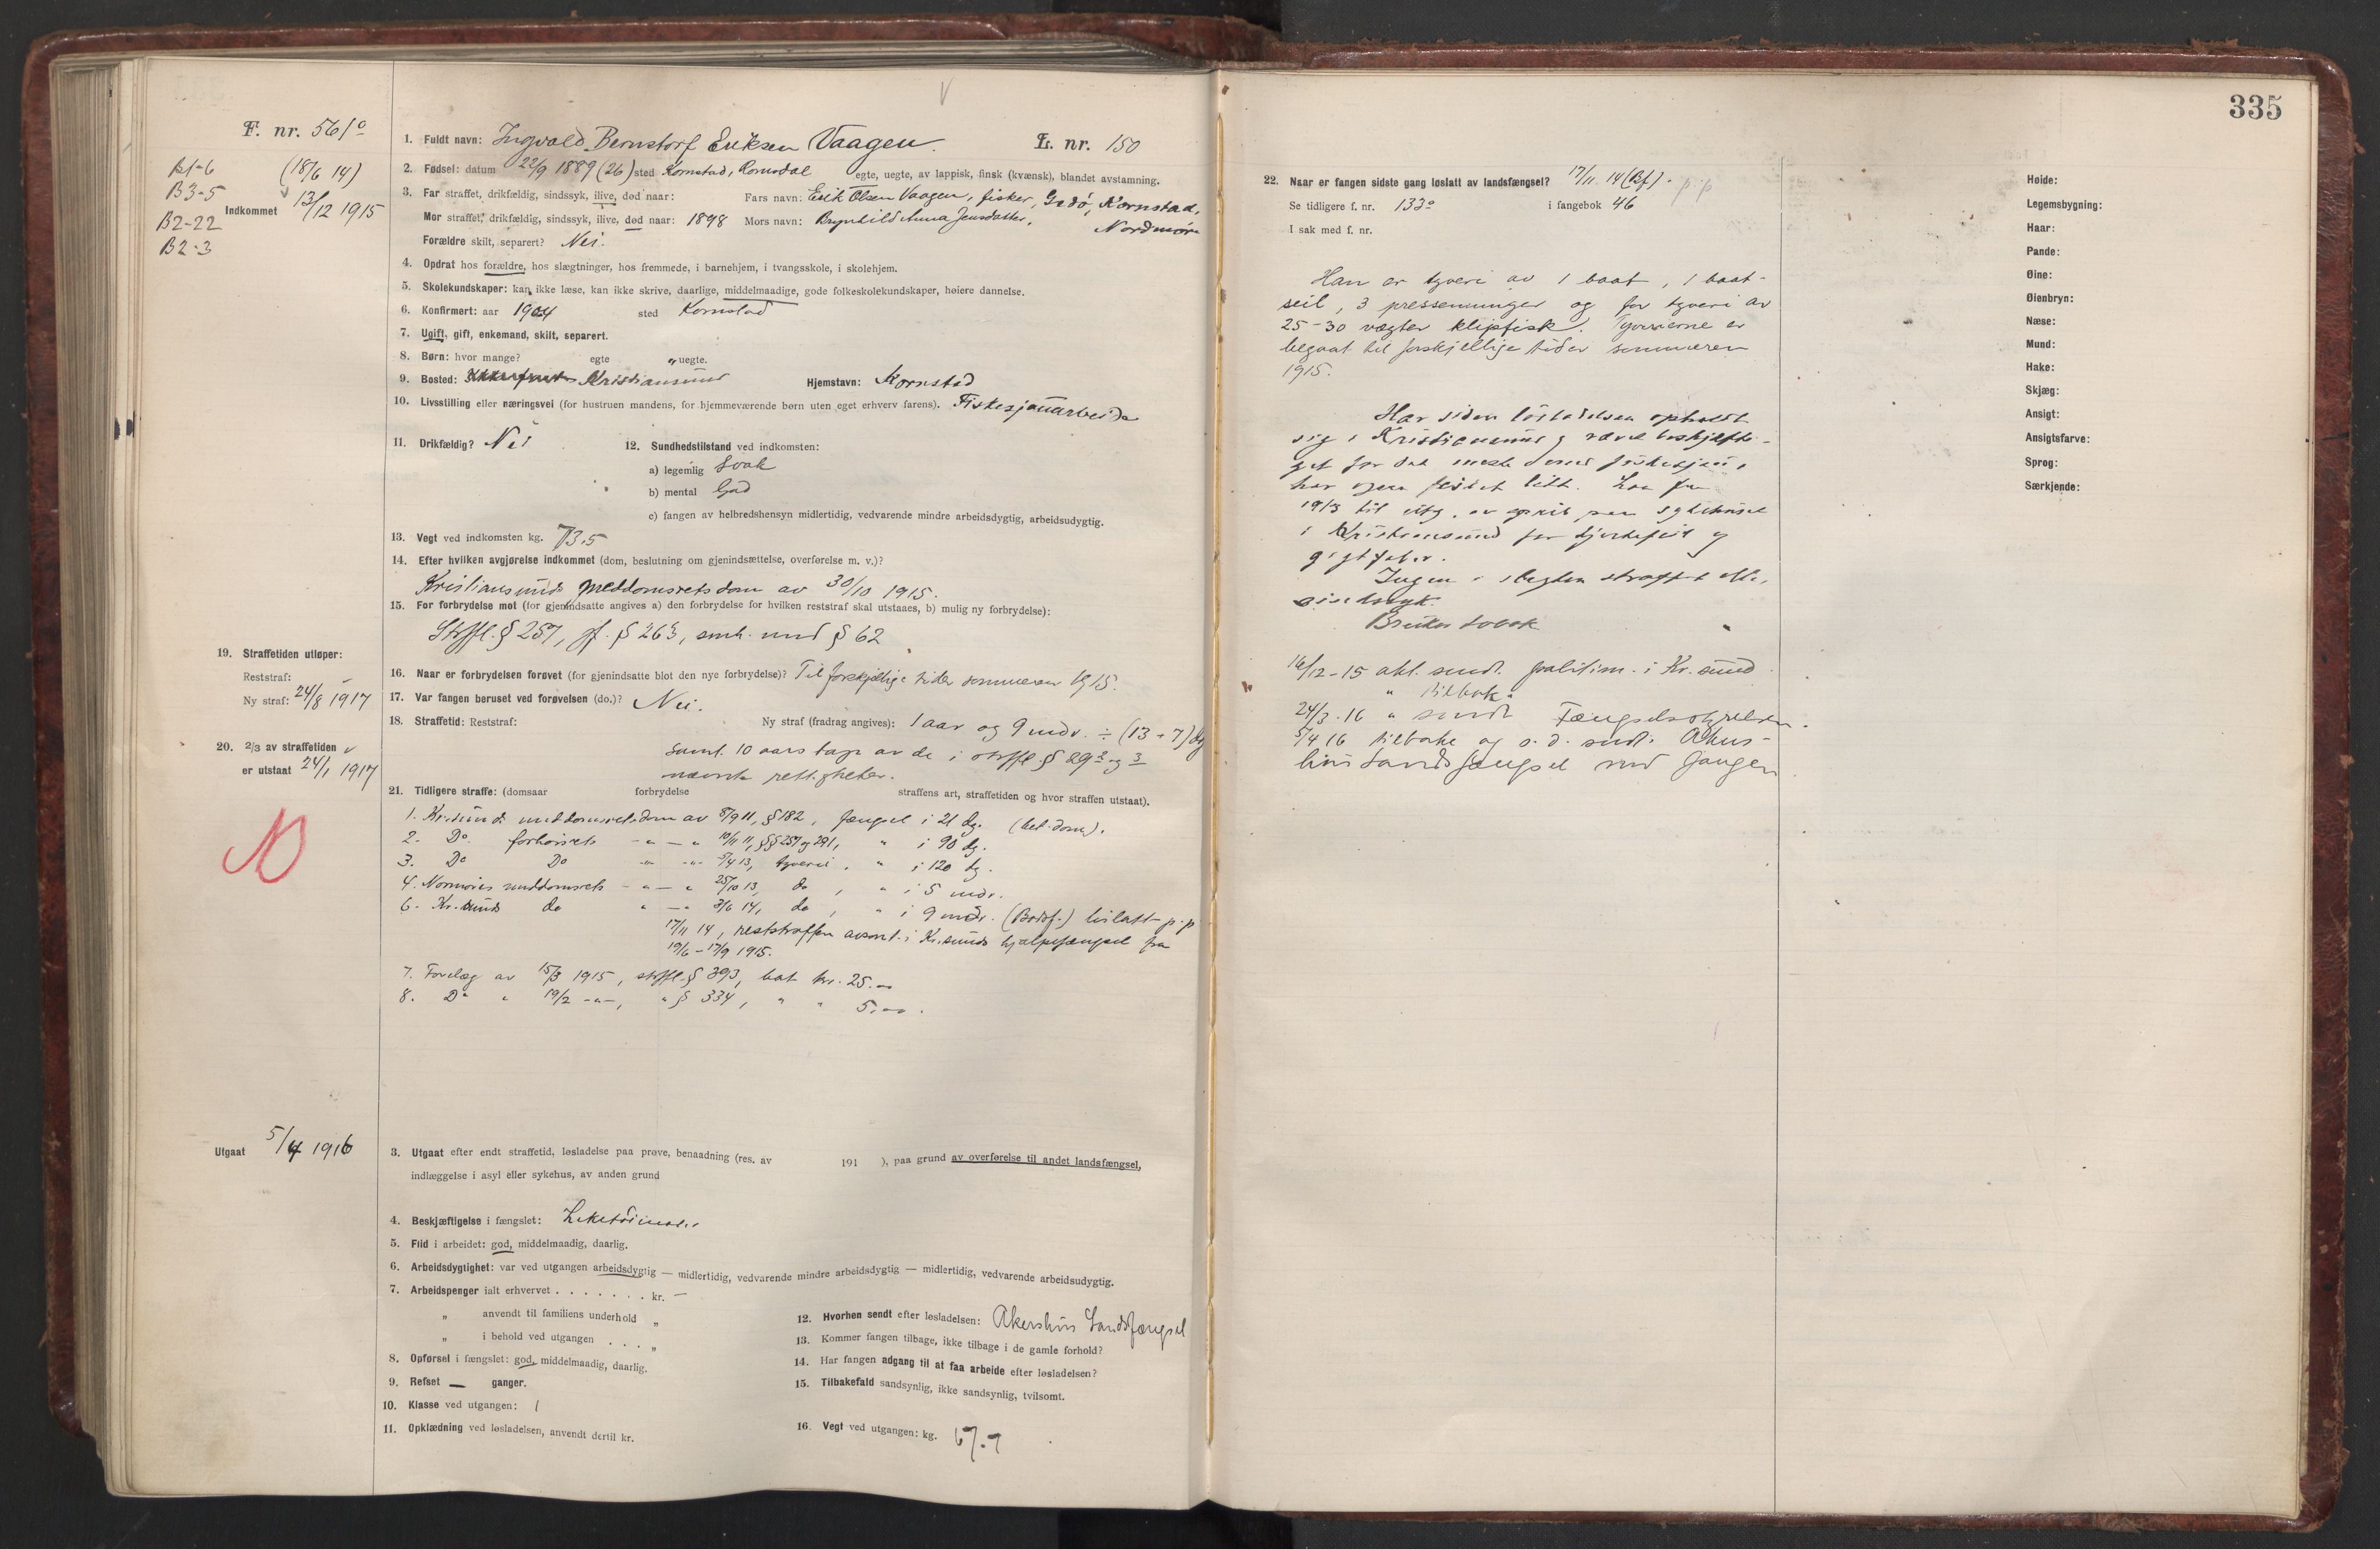 335
F. nr. 561º
B1-6
B3-5
B2-22
B2-3
(18/6 14)
Indkommet 13/12 1915
1. Fuldt navn: Ingvald Bernstorf Eriksen Vaagen. L. nr. 150
2. Fødsel: datum 22/9 1889 (26) sted Kornstad, Romsdal egte, uegte, av lappisk, finsk (kvænsk), blandet avstamning.
3. Far straffet, drikfældig, sindssyk, ilive, død naar: Fars navn: Erik Olsen Vaagen, fisker, Kornstad,
Mor straffet, drikfældig, sindssyk, ilive, død naar: 1898 Mors navn: Brynhild Anna Jensdatter. Nordmøre
Forældre skilt, separert? Nei.
4. Opdrat hos forældre, hos slægtninger, hos fremmede, i barnehjem, i tvangsskole, i skolehjem.
5. Skolekundskaper: kan ikke læse, kan ikke skrive, daarlige, middelmaadige, gode folkeskolekundskaper, høiere dannelse.
6. Konfirmert: aar 1904 sted Kornstad
7. Ugift, gift, enkemand, skilt, separert.
8. Børn: hvor mange? egte " uegte.
9. Bosted: Kristiansund Hjemstavn: Kornstad
10. Livsstilling eller næringsvei (for hustruen mandens, for hjemmeværende børn uten eget erhverv farens). Fiskesjauarbeider
11. Drikfældig? Nei 12. Sundhedstilstand ved indkomsten:
a) legemlig Svak
b) mental God
c) fangen av helbredshensyn midlertidig, vedvarende mindre arbeidsdygtig, arbeidsudygtig.
13. Vegt ved indkomsten kg. 73.5
14. Efter hvilken avgjørelse indkommet (dom, beslutning om gjenindsættelse, overførelse m. v.)?
Kristiansunds meddomsretsdom av 30/10 1915.
15. For forbrydelse mot (for gjenindsatte angives a) den forbrydelse for hvilken reststraf skal utstaaes, b) mulig ny forbrydelse):
Strffl. § 257, jf. § 263, smh. med § 62
16. Naar er forbrydelsen forøvet (for gjenindsatte blot den nye forbrydelse)? Til forskjellige tider sommeren 1915.
17. Var fangen beruset ved forøvelsen (do.)? Nei.
18. Straffetid: Reststraf: Ny straf (fradrag angives): 1 aar og 9 mdr. ÷ (13 + 7) dg
samt 10 aars tap av de i strffl § 29 2 og 3
nævnte rettigheter.
19. Straffetiden utløper:
Reststraf: –
Ny straf: 24/8 1917
20. 2/3 av straffetiden
er utstaat 24/1 1917
21. Tidligere straffe: (domsaar forbrydelse straffens art, straffetiden og hvor straffen utstaat).
1. Kr.sunds meddomsretsdom av 8/9 11, § 182, fængsel i 21 dg. (bet. dom).
2. Do. forhørsrets - " - " 10/11 11, §§ 257 og 291, " i 90 dg.
3. Do Do " - " - 5/4 13, tyveri, " i 120 dg.
4. Normøres meddomsrets - " - " 25/10 13, do, " i 5 mdr.
6. Kr.sunds do " - " 3/6 14, do, " i 9 mdr. (Botsf.) løslatt p.p
17/11 14, reststraffen avsont i Kr.sunds hjælpefængsel fra
19/6 – 17/9 1915.
7. Forelæg av 15/3 1915, strffl. § 393, bot kr. 25.–
8. Do " 19/2 - " -, " § 334, " " 5.–
Utgaat 5/4 1916
3. Utgaat efter endt straffetid, løsladelse paa prøve, benaadning (res. av 191 ), paa grund av overførelse til andet landsfængsel,
indlæggelse i asyl eller sykehus, av anden grund
4. Beskjæftigelse i fængslet: Leketøimaler
5. Flid i arbeidet: god, middelmaadig, daarlig.
6. Arbeidsdygtighet: var ved utgangen arbeidsdygtig — midlertidig, vedvarende mindre arbeidsdygtig — midlertidig, vedvarende arbeidsudygtig.
7. Arbeidspenger ialt erhvervet . . . . . . . kr. –
" anvendt til familiens underhold "
" i behold ved utgangen . . . "
8. Opførsel i fængslet: god, middelmaadig, daarlig.
9. Refset — ganger.
10. Klasse ved utgangen: 1
11. Opklædning ved løsladelsen, anvendt dertil kr.
12. Hvorhen sendt efter løsladelsen: Akershus Landsfængsel
13. Kommer fangen tilbage, ikke tilbage i de gamle forhold?
14. Har fangen adgang til at faa arbeide efter løsladelsen?
15. Tilbakefald sandsynlig, ikke sandsynlig, tvilsomt.
16. Vegt ved utgangen: kg. 67.7
22. Naar er fangen sidste gang løslatt av landsfængsel? 17/11. 14 (Bf). p.p
Se tidligere f. nr. 133º i fangebok 46
I sak med f. nr.
Han er tyveri av 1 baat, 1 baat-
seil, 3 pressenninger og for tyveri av
25-30 vægter klipfisk. Tyverierne er
begaat til forskjellige tider sommeren
1915.
Har siden løsladelsen opholdt
sig i Kristiansund og været beskjæfti-
get for det meste med fiskesjau,
har ogsaa fisket litt. Laa fra
19/3 til utg. av april paa sykehuset
i Kristiansund for hjertefeil og
gigtfeber.
Ingen i slegten straffet eller
sindssyk.
Bruker tobak
16/12-15 akt. sendt politim. i Kr.sund.
" tilbak.
24/3. 16 " sendt Fængselsstyrelsen.
5/4 16 tilbake og s. d. sendt Akers-
hus Landsfængsel med fangen
Høide:
Legemsbygning:
Haar:
Pande:
Øine:
Øienbryn:
Næse:
Mund:
Hake:
Skjæg:
Ansigt:
Ansigtsfarve:
Sprog:
Særkjende: